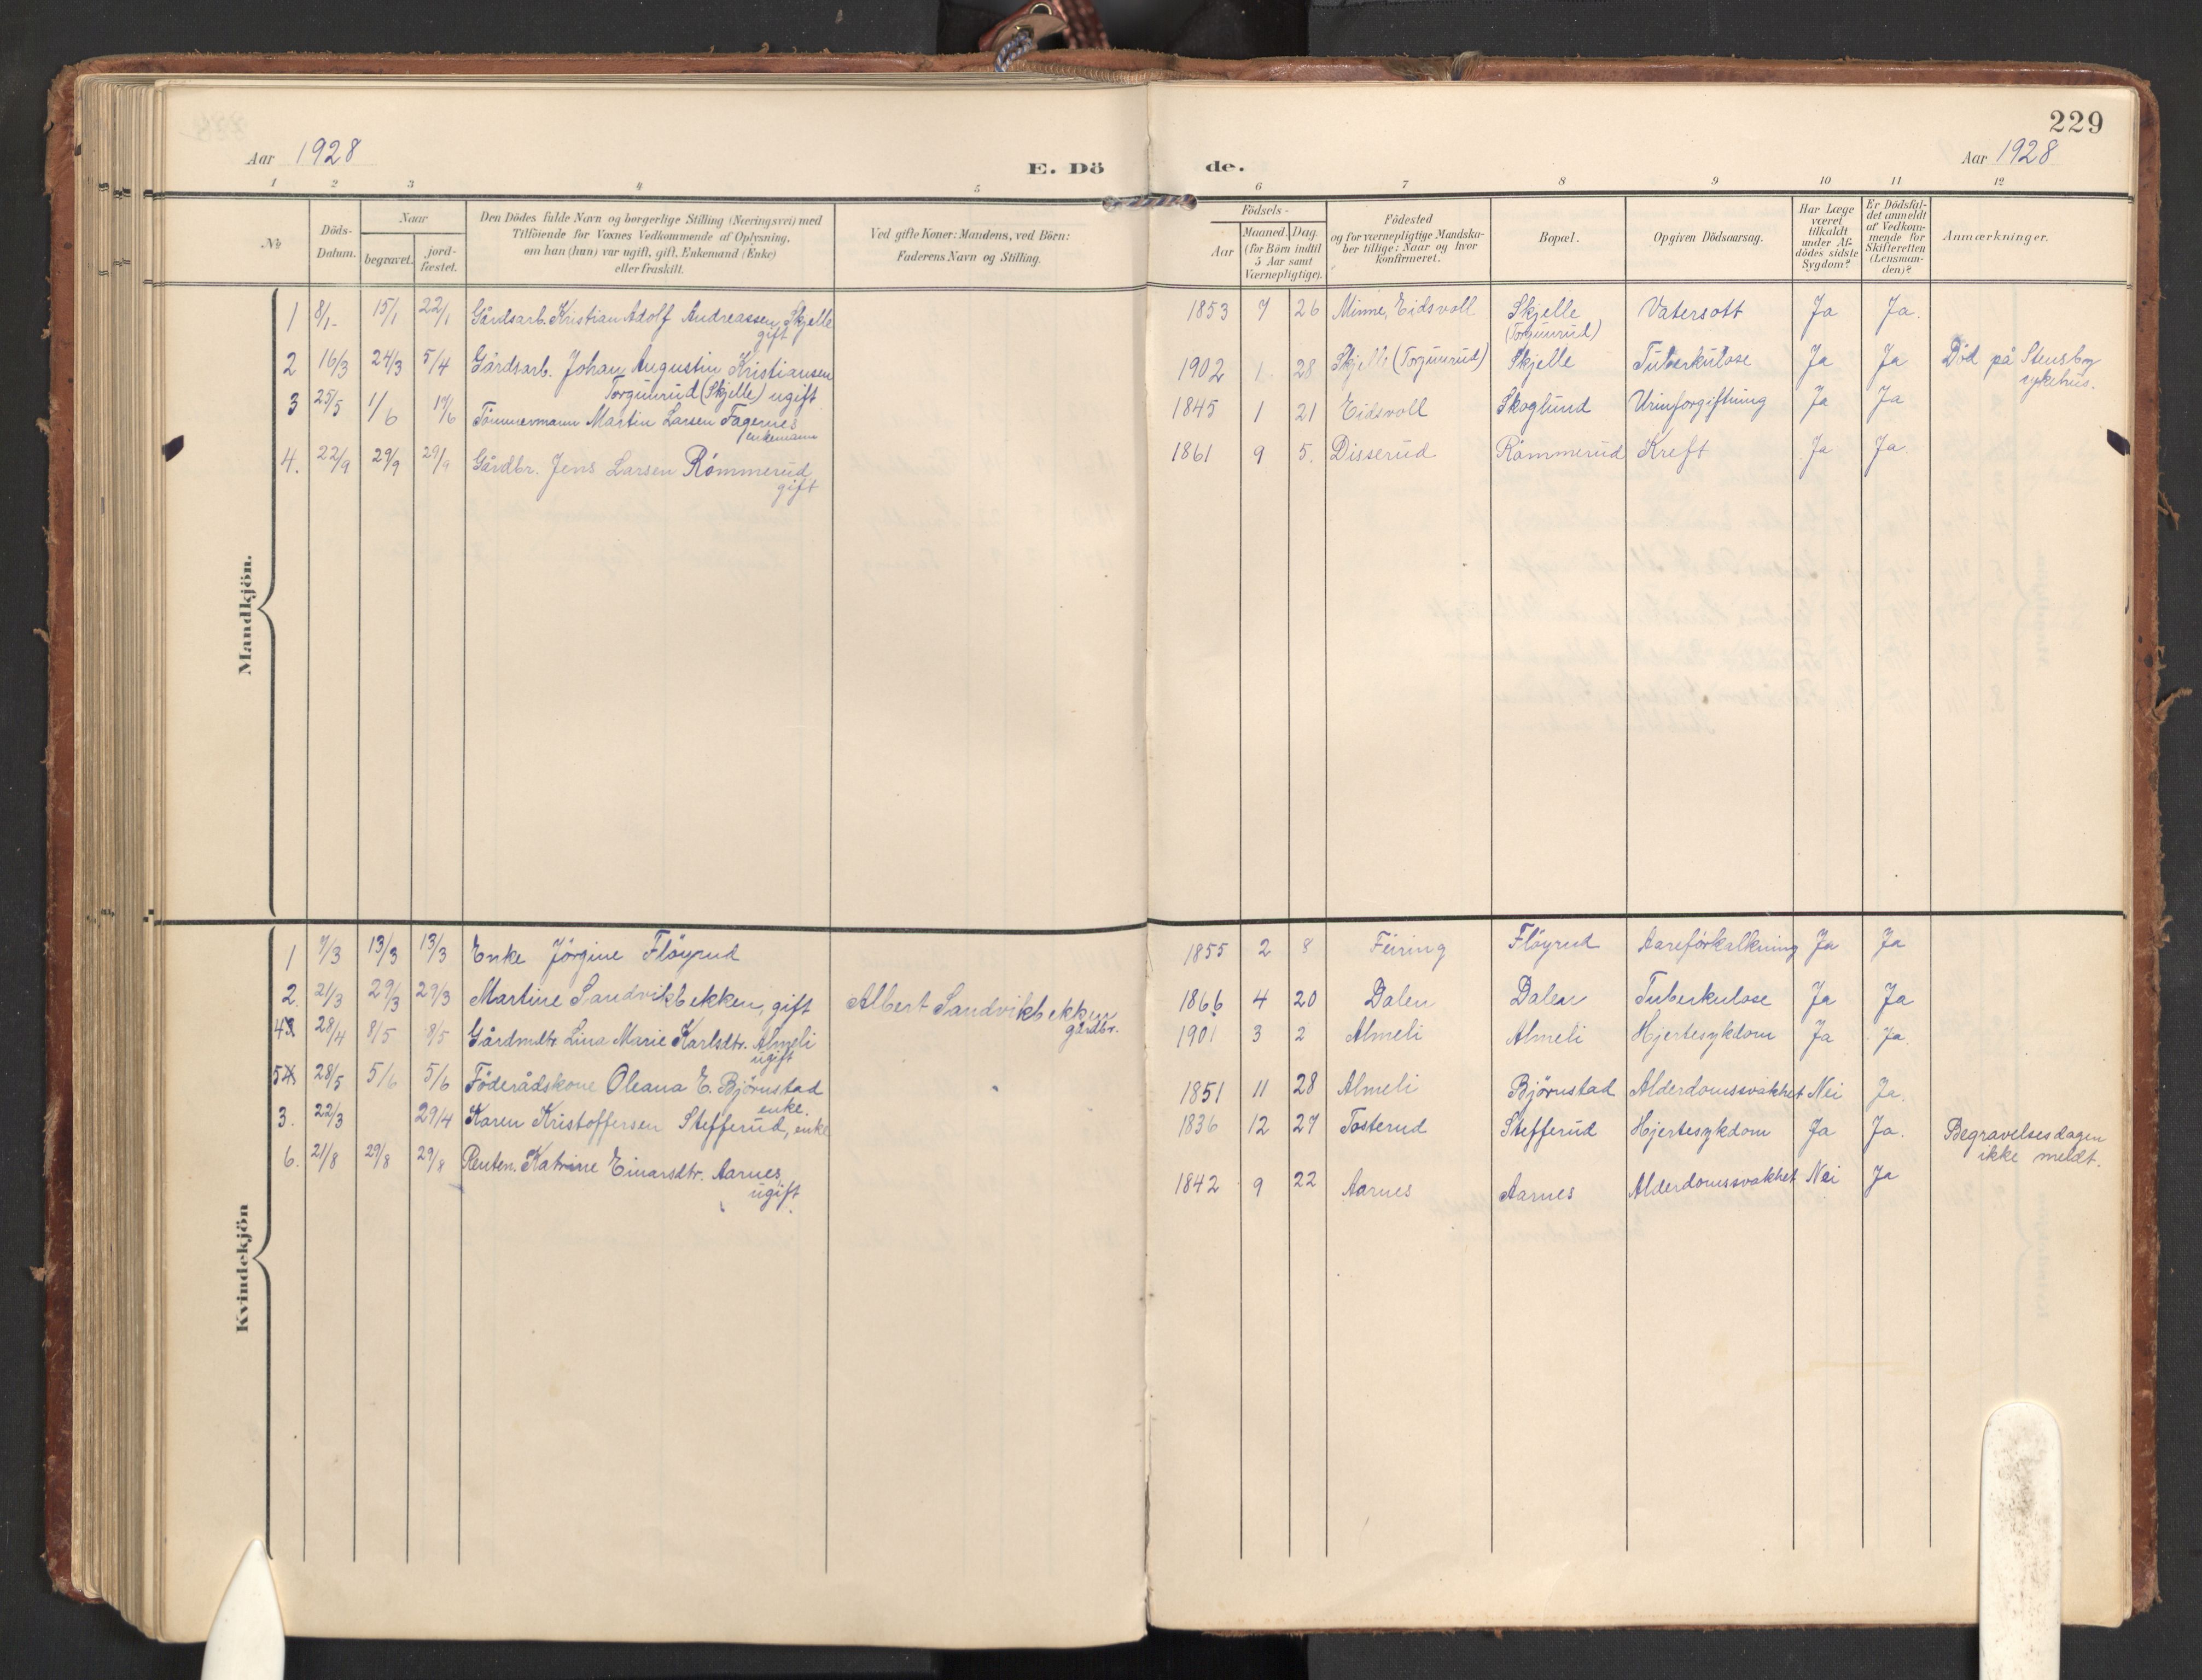 229
Aar 1928
E. Dö
de.
Aar 1928
1 2 3 4 5 6 7 8 9 10 11 12
№
Döds-
Datum.
Naar
begravet.
jord-
fæstet.
Den Dödes fulde Navn og borgerlige Stilling (Næringsvei) med
Tilföiende for Voxnes Vedkommende af Oplysning,
om han (hun) var ugift, gift, Enkemand (Enke)
eller fraskilt.
Ved gifte Koner: Mandens, ved Börn:
Faderens Navn og Stilling.
Födsels-
Aar
Maaned. Dag.
(for Börn indtil
5 Aar samt
Værnepligtige).
Födested
og for værnepligtige Mandska-
ber tillige: Naar og hvor
konfirmeret.
Bopæl.
Opgiven Dödsaarsag.
Har Læge
været
tilkaldt
under Af-
dödes sidste
Sygdom?
Er Dödsfal-
det anmeldt
af Vedkom-
mende for
Skifteretten
(Lensman-
den)?
Anmærkninger.
Mandkjön.
1 8/1- 15/1 22/1 Gårdsarb. Kristian Adolf Andreassen, Skjelle 1853 7 26 Minne, Eidsvoll Skjelle Vatersott Ja Ja.
gift (Torgunrud)
2 16/3 24/3 5/4 Gårdsarb. Johan Augustin Kristiansen 1902 1. 28 Skjelle (Torgunrud) Skjelle Tuberkulose Ja Ja Död på Stensby
Torgunrud (Skjelle) ugift sykehus.
3 25/5 1/6 Tömmermann Martin Larsen Fagernes 1845 1 21 Eidsvoll Skoglund Urinforgiftning Ja Ja
enkemann
4. 22/9 29/9 29/9 Gårdbr. Jens Larsen Römmerud 1861 9 5. Disserud Römmerud Kreft Ja Ja
gift
Kvindekjön
1 7/3 13/3 13/3 Enke Jörgine Flöyrud 1855 2 8 Feiring Flöyrud Aareforkalkning Ja Ja
2. 21/3 29/3 29/3 Martine Sandvikbekken, gift Albert Sandvikbekken 1866 4 20 Dalen Dalen Tuberkulose Ja Ja
gårdbr.
4 28/4 8/5 8/5 Gårdmdtr. Lina Marie Karlsdtr. Almeli 1901 3 2 Almeli Almeli Hjertesykdom Ja Ja.
ugift
5 28/5 5/6 5/6 Föderådskone Oleana E. Björnstad 1851 11 28 Almeli Björnstad Alderdomssvakhet Nei Ja.
enke.
3. 22/3 29/4 Karen Kristoffersen Stefferud, enke 1836 12 27 Tosterud Stefferud Hjertesykdom Ja Ja. Begravelsesdagen
ikke meldt.
6. 21/8 29/8 29/8 Renten. Katrine Einarsdtr. Aarnes 1842 9 22 Aarnes Aarnes Alderdomssvakhet Nei Ja
ugift